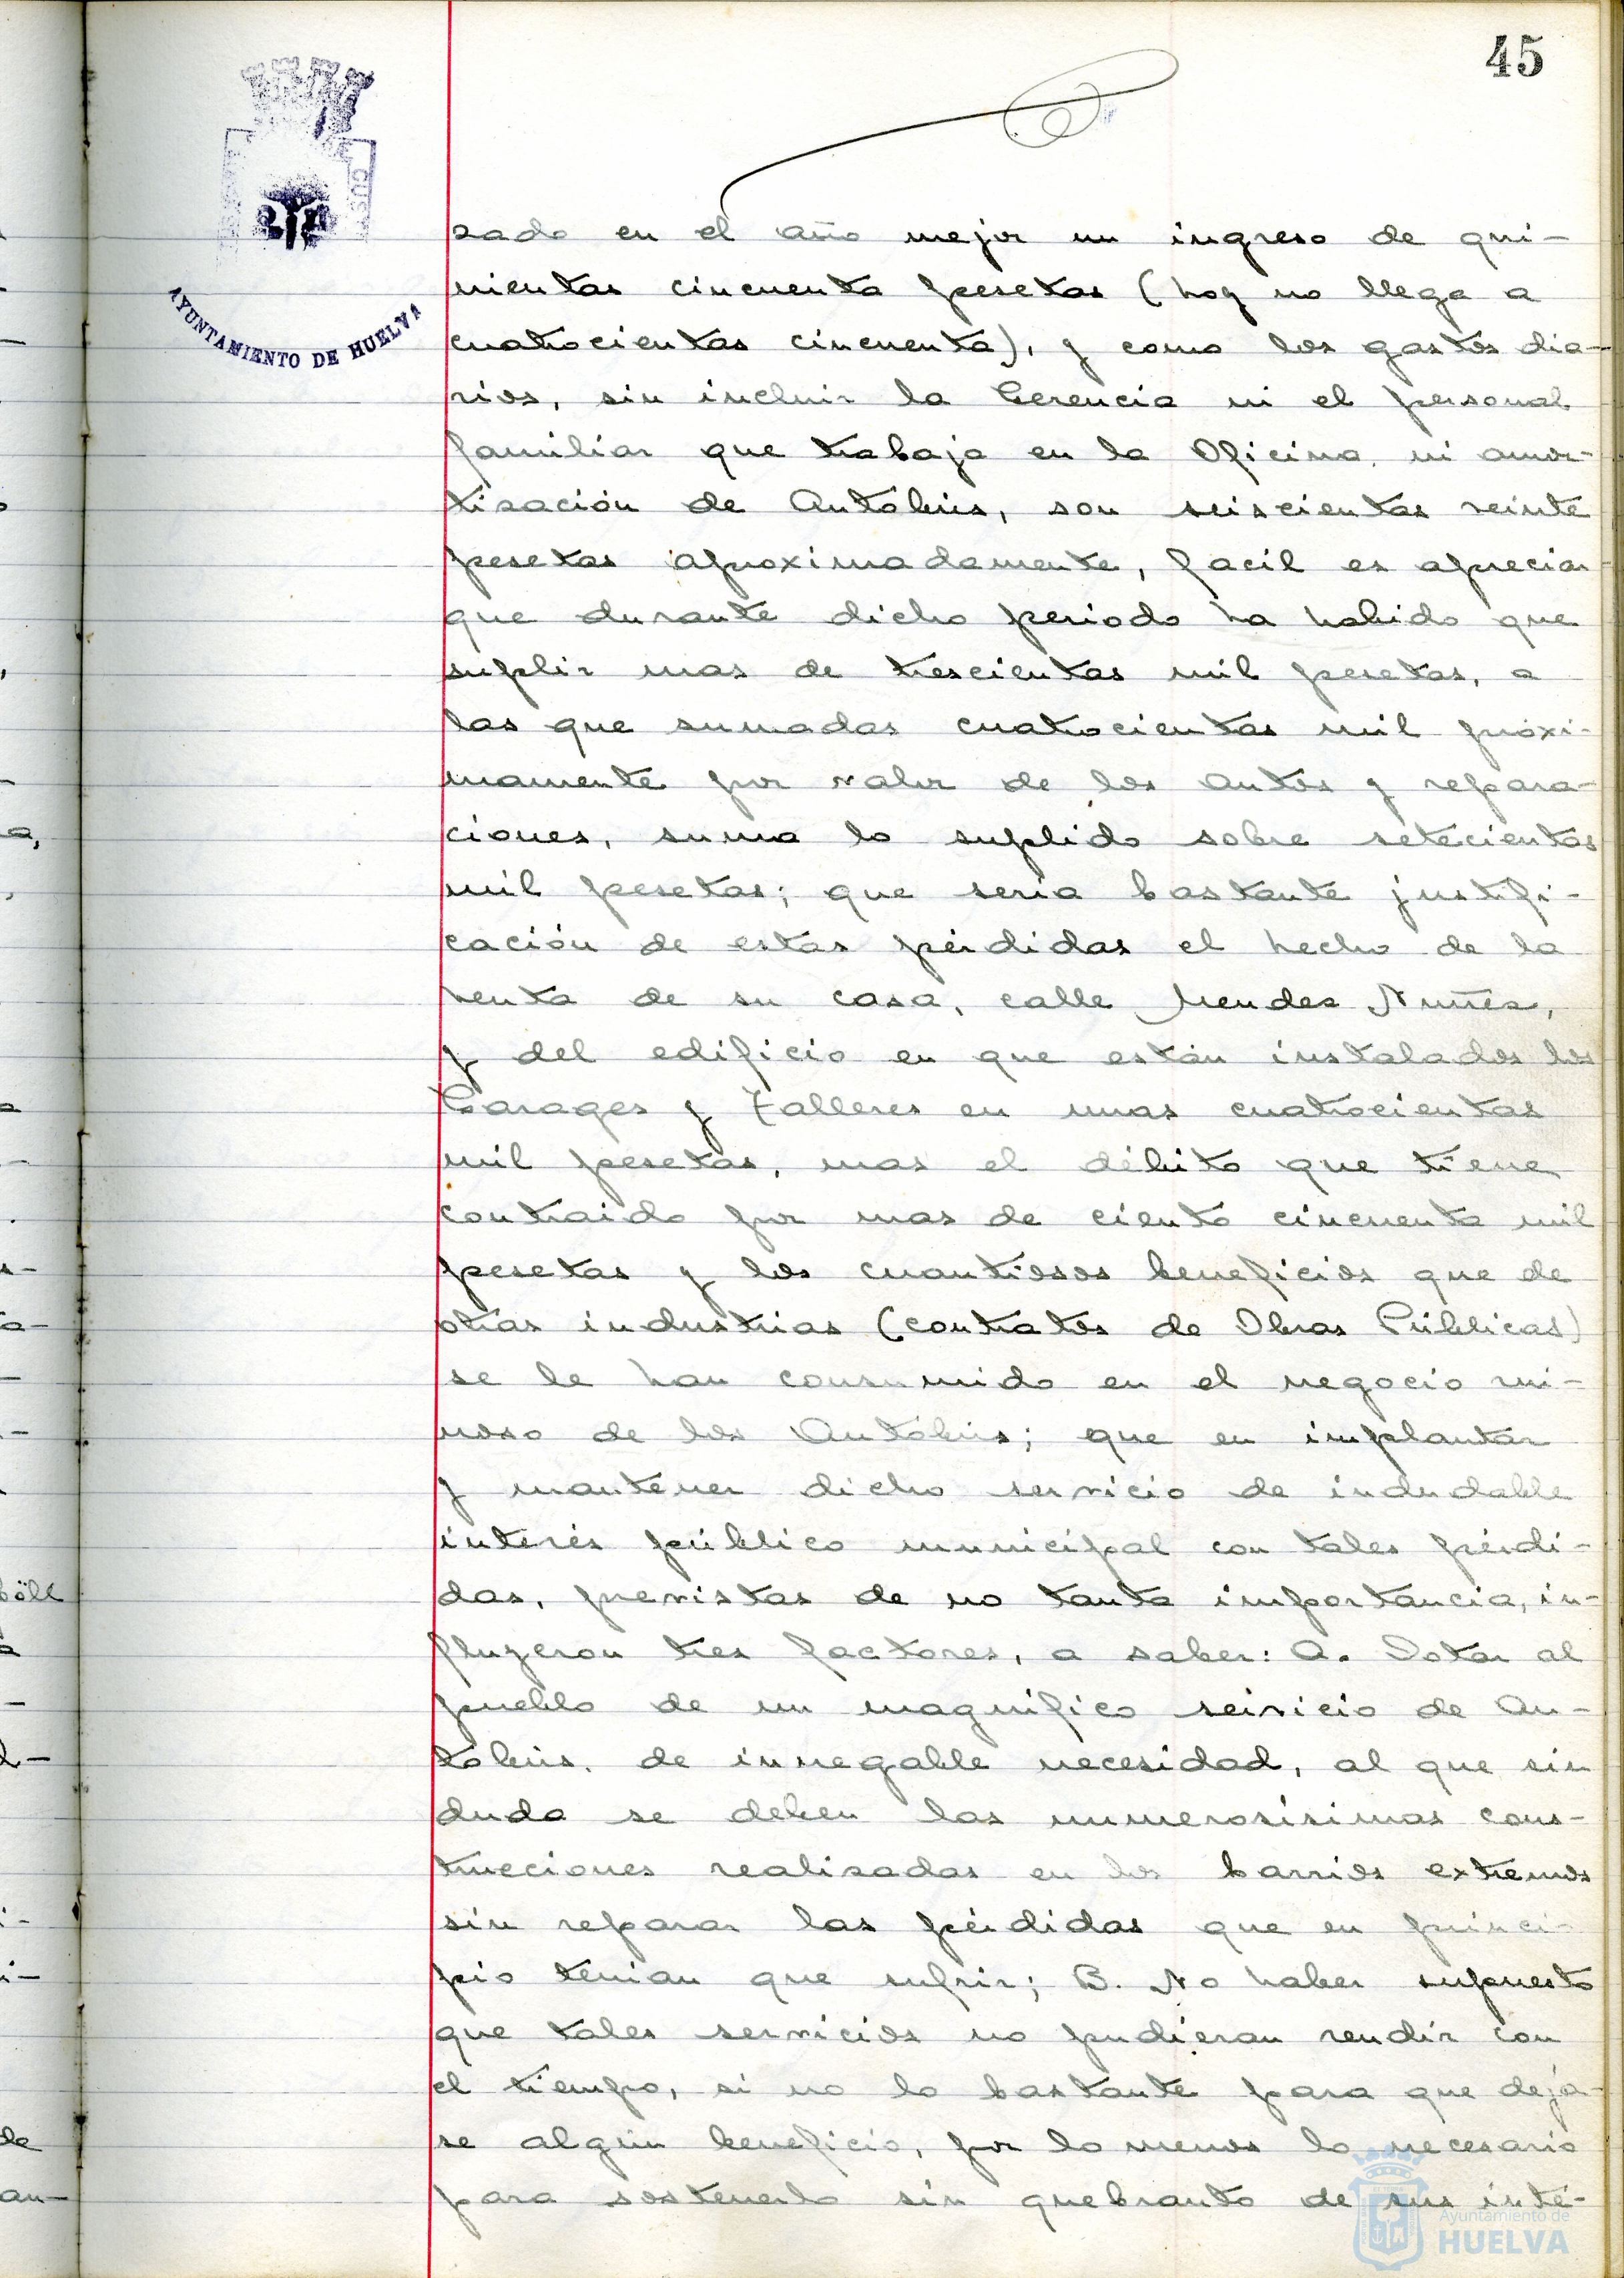 45
AYUNTAMIENTO DE HUELVA
zado en el año mejor un ingreso de qui-
nientas cincuenta pesetas (hoy no llega a
cuatrocientas cincuenta), y como los gastos dia-
rios, sin incluir la Gerencia ni el personal
familiar que trabaja en la Oficina, ni amor-
tización de Autobús, son seiscientas veinte
pesetas aproximadamente, facil es apreciar
que durante dicho periodo ha habido que
suplir mas de trescientas mil pesetas, a
las que sumadas cuatrocientas mil próxi-
mamente por valor de los autos y repara-
ciones, suma lo suplido sobre setecientas
mil pesetas; que seria bastante justifi-
cación de estas pérdidas el hecho de la
venta de su casa, calle Mendez Nuñez,
y del edificio en que están instalados los
Garages y Talleres en unas cuatrocientas
mil pesetas, mas el débito que tiene
contraido por mas de ciento cincuenta mil
pesetas y los cuantiosos beneficios que de
otras industrias (contratos de Obras Públicas)
se le han consumido en el negocio rui-
noso de los Autobús; que en implantar
y mantener dicho servicio de indudable
interés público municipal con tales pérdi-
das, previstas de no tanta importancia, in-
fluyeron tres factores, a saber: A. Dotar al
pueblo de un magnífico servicio de Au-
tobús, de innegable necesidad, al que sin
duda se deben las numerosísimas cons-
trucciones realizadas en los barrios extremos
sin reparar las pérdidas que en princi-
pio tenian que sufrir; B. No haber supuesto
que tales servicios no pudieran rendir con
el tiempo, si no lo bastante para que deja-
se algún beneficio, por lo menos lo necesario
para sostenerlo sin quebranto de sus inte-
Ayuntamiento de
HUELVA